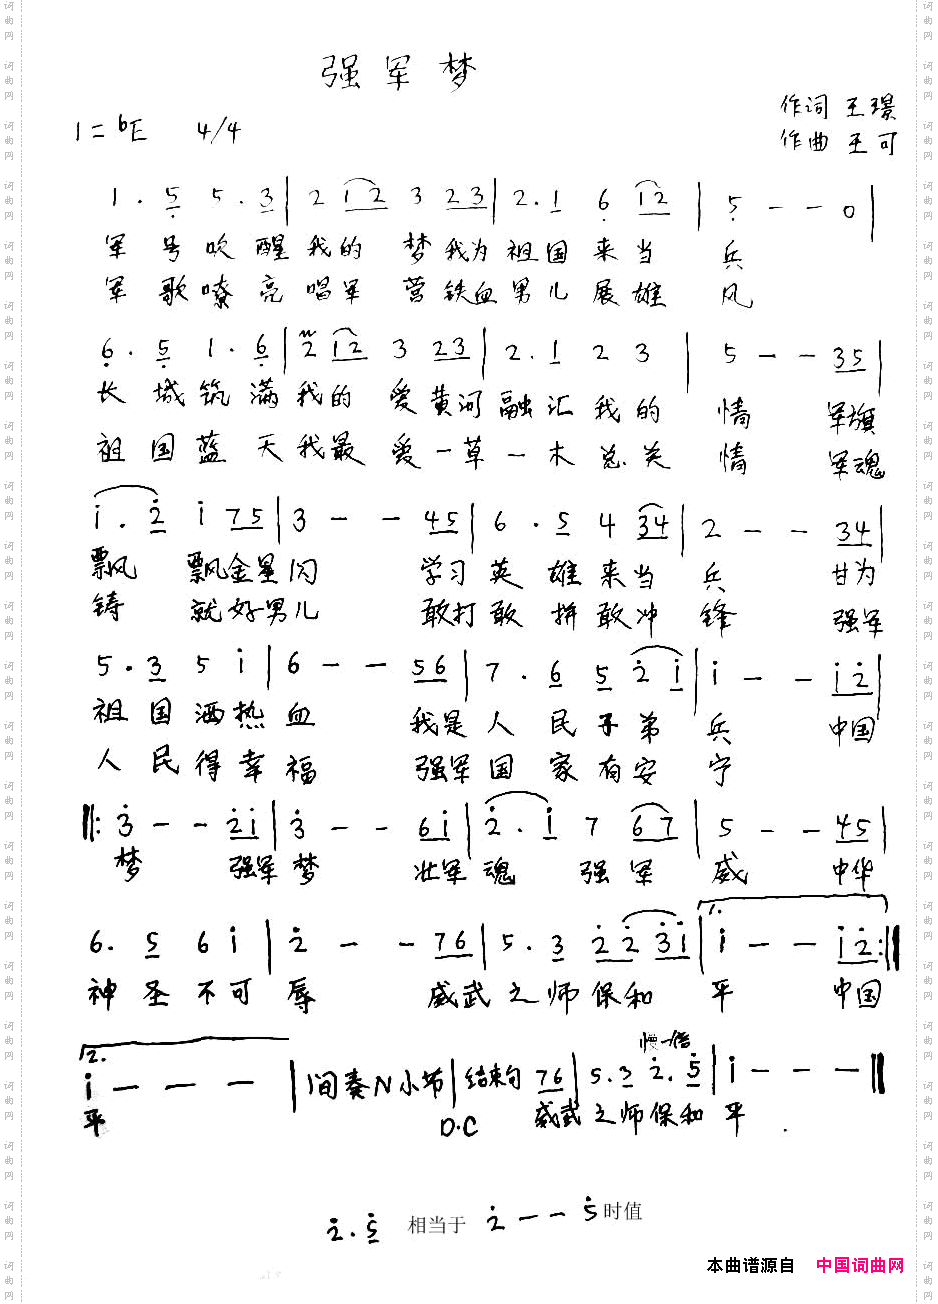 强军梦
作词 王璟
1=bE 4/4
作曲 王可
1. 5 5. 3 | 2 12 3 23 | 2. 1 6 12 | 5 - - 0 |
军号吹醒我的 梦我为祖国来当 兵
军歌嘹亮唱军 营铁血男儿展雄 风
6. 5 1. 6 | 2 12 3 23 | 2. 1 2 3 | 5 - - 35 |
长城筑满我的 爱黄河融汇我的 情 军旗
祖国蓝天我最 爱一草一木总关 情 军魂
i. 2 i 75 | 3 - - 45 | 6. 5 4 34 | 2 - - 34 |
飘 飘金星闪 学习英雄来当兵 甘为
铸 就好男儿 敢打敢拼敢冲锋 强军
5. 3 5 i | 6 - - 56 | 7. 6 5 2 i | i - - i2 |
祖国洒热血 我是人民子弟兵 中国
人民得幸福 强军国家有安宁
‖: 3 - - 2i | 3 - - 6i | 2. i 7 67 | 5 - - 45 |
梦 强军梦 壮军魂 强军 威 中华
1.
6. 5 6 i | 2 - - 76 | 5. 3 2 2 3i | i - - i2 :‖
神圣不可辱 威武之师保和 平 中国
慢一倍
2.
i - - - | 间奏N小节 | 结束句 76 | 5. 3 2. 5 | i - - - ‖
平 D.C 威武之师保和平
2. 5 相当于 2 - - 5 时值
本曲谱源自 中国词曲网